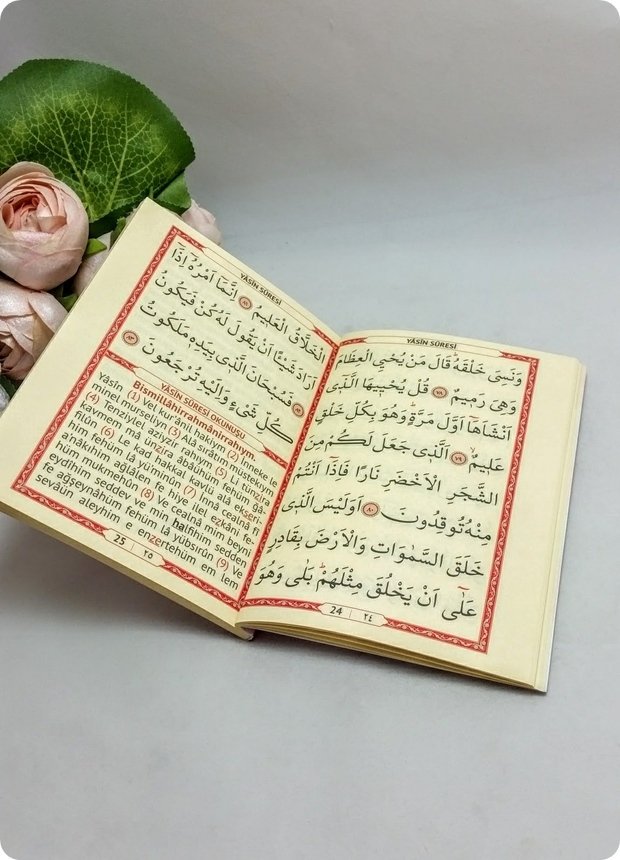 YÂSİN SÛRESİ
وَنَسِيَ خَلْقَهُ قَالَ مَنْ يُحْيِي الْعِظَامَ
وَهِيَ رَمِيمٌ ٧٨ قُلْ يُحْيِيهَا الَّذِي
اَنْشَاَهَا اَوَّلَ مَرَّةٍ وَهُوَ بِكُلِّ خَلْقٍ
عَلِيمٌ ٧٩ اَلَّذِي جَعَلَ لَكُمْ مِنَ
الشَّجَرِ الْاَخْضَرِ نَارًا فَاِذَا اَنْتُمْ
مِنْهُ تُوقِدُونَ ٨٠ اَوَلَيْسَ الَّذِي
خَلَقَ السَّمٰوَاتِ وَالْاَرْضَ بِقَادِرٍ
عَلٰى اَنْ يَخْلُقَ مِثْلَهُمْ بَلٰى وَهُوَ
24 | ٢٤
YÂSİN SÛRESİ
الْخَلَّاقُ الْعَلِيمُ ٨١ اِنَّمَا اَمْرُهُ اِذَا
اَرَادَ شَيْئًا اَنْ يَقُولَ لَهُ كُنْ فَيَكُونُ
٨٢ فَسُبْحَانَ الَّذِي بِيَدِهِ مَلَكُوتُ
كُلِّ شَيْءٍ وَاِلَيْهِ تُرْجَعُونَ ٨٣
YÂSİN SÛRESİ OKUNUŞU
Bismillâhirrahmânirrahym.
Yâsîn (1) Vel kur'ânil hakiym (2) İnneke le
minel murseliyn (3) Alâ sırâtın müstekıym
(4) Tenziylel aziyzir rahym (5) Li tünzira
kavmem mâ ünzira âbâühüm fehüm ğâ-
filûn (6) Le kad hakkal kavlü alâ ekseri-
him fehüm lâ yü'minûn (7) İnnâ cealnâ fî
a'nâkıhim ağlâlen fe hiye ilel ezkâni fe-
hüm mukmehûn (8) Ve cealnâ mim beyni
eydîhim seddev ve min halfihim sedden
fe ağşeynâhüm fehüm lâ yübsırûn (9) Ve
sevâün aleyhim e enzertehüm em lem
25 | ٢٥